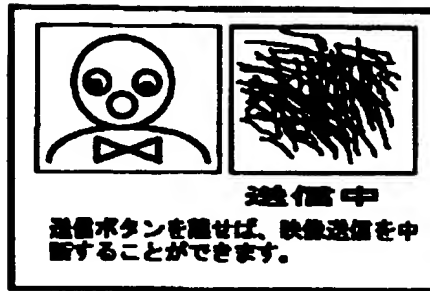 送信中
送信ボタンを離せば、映像送信を中
断することができます。